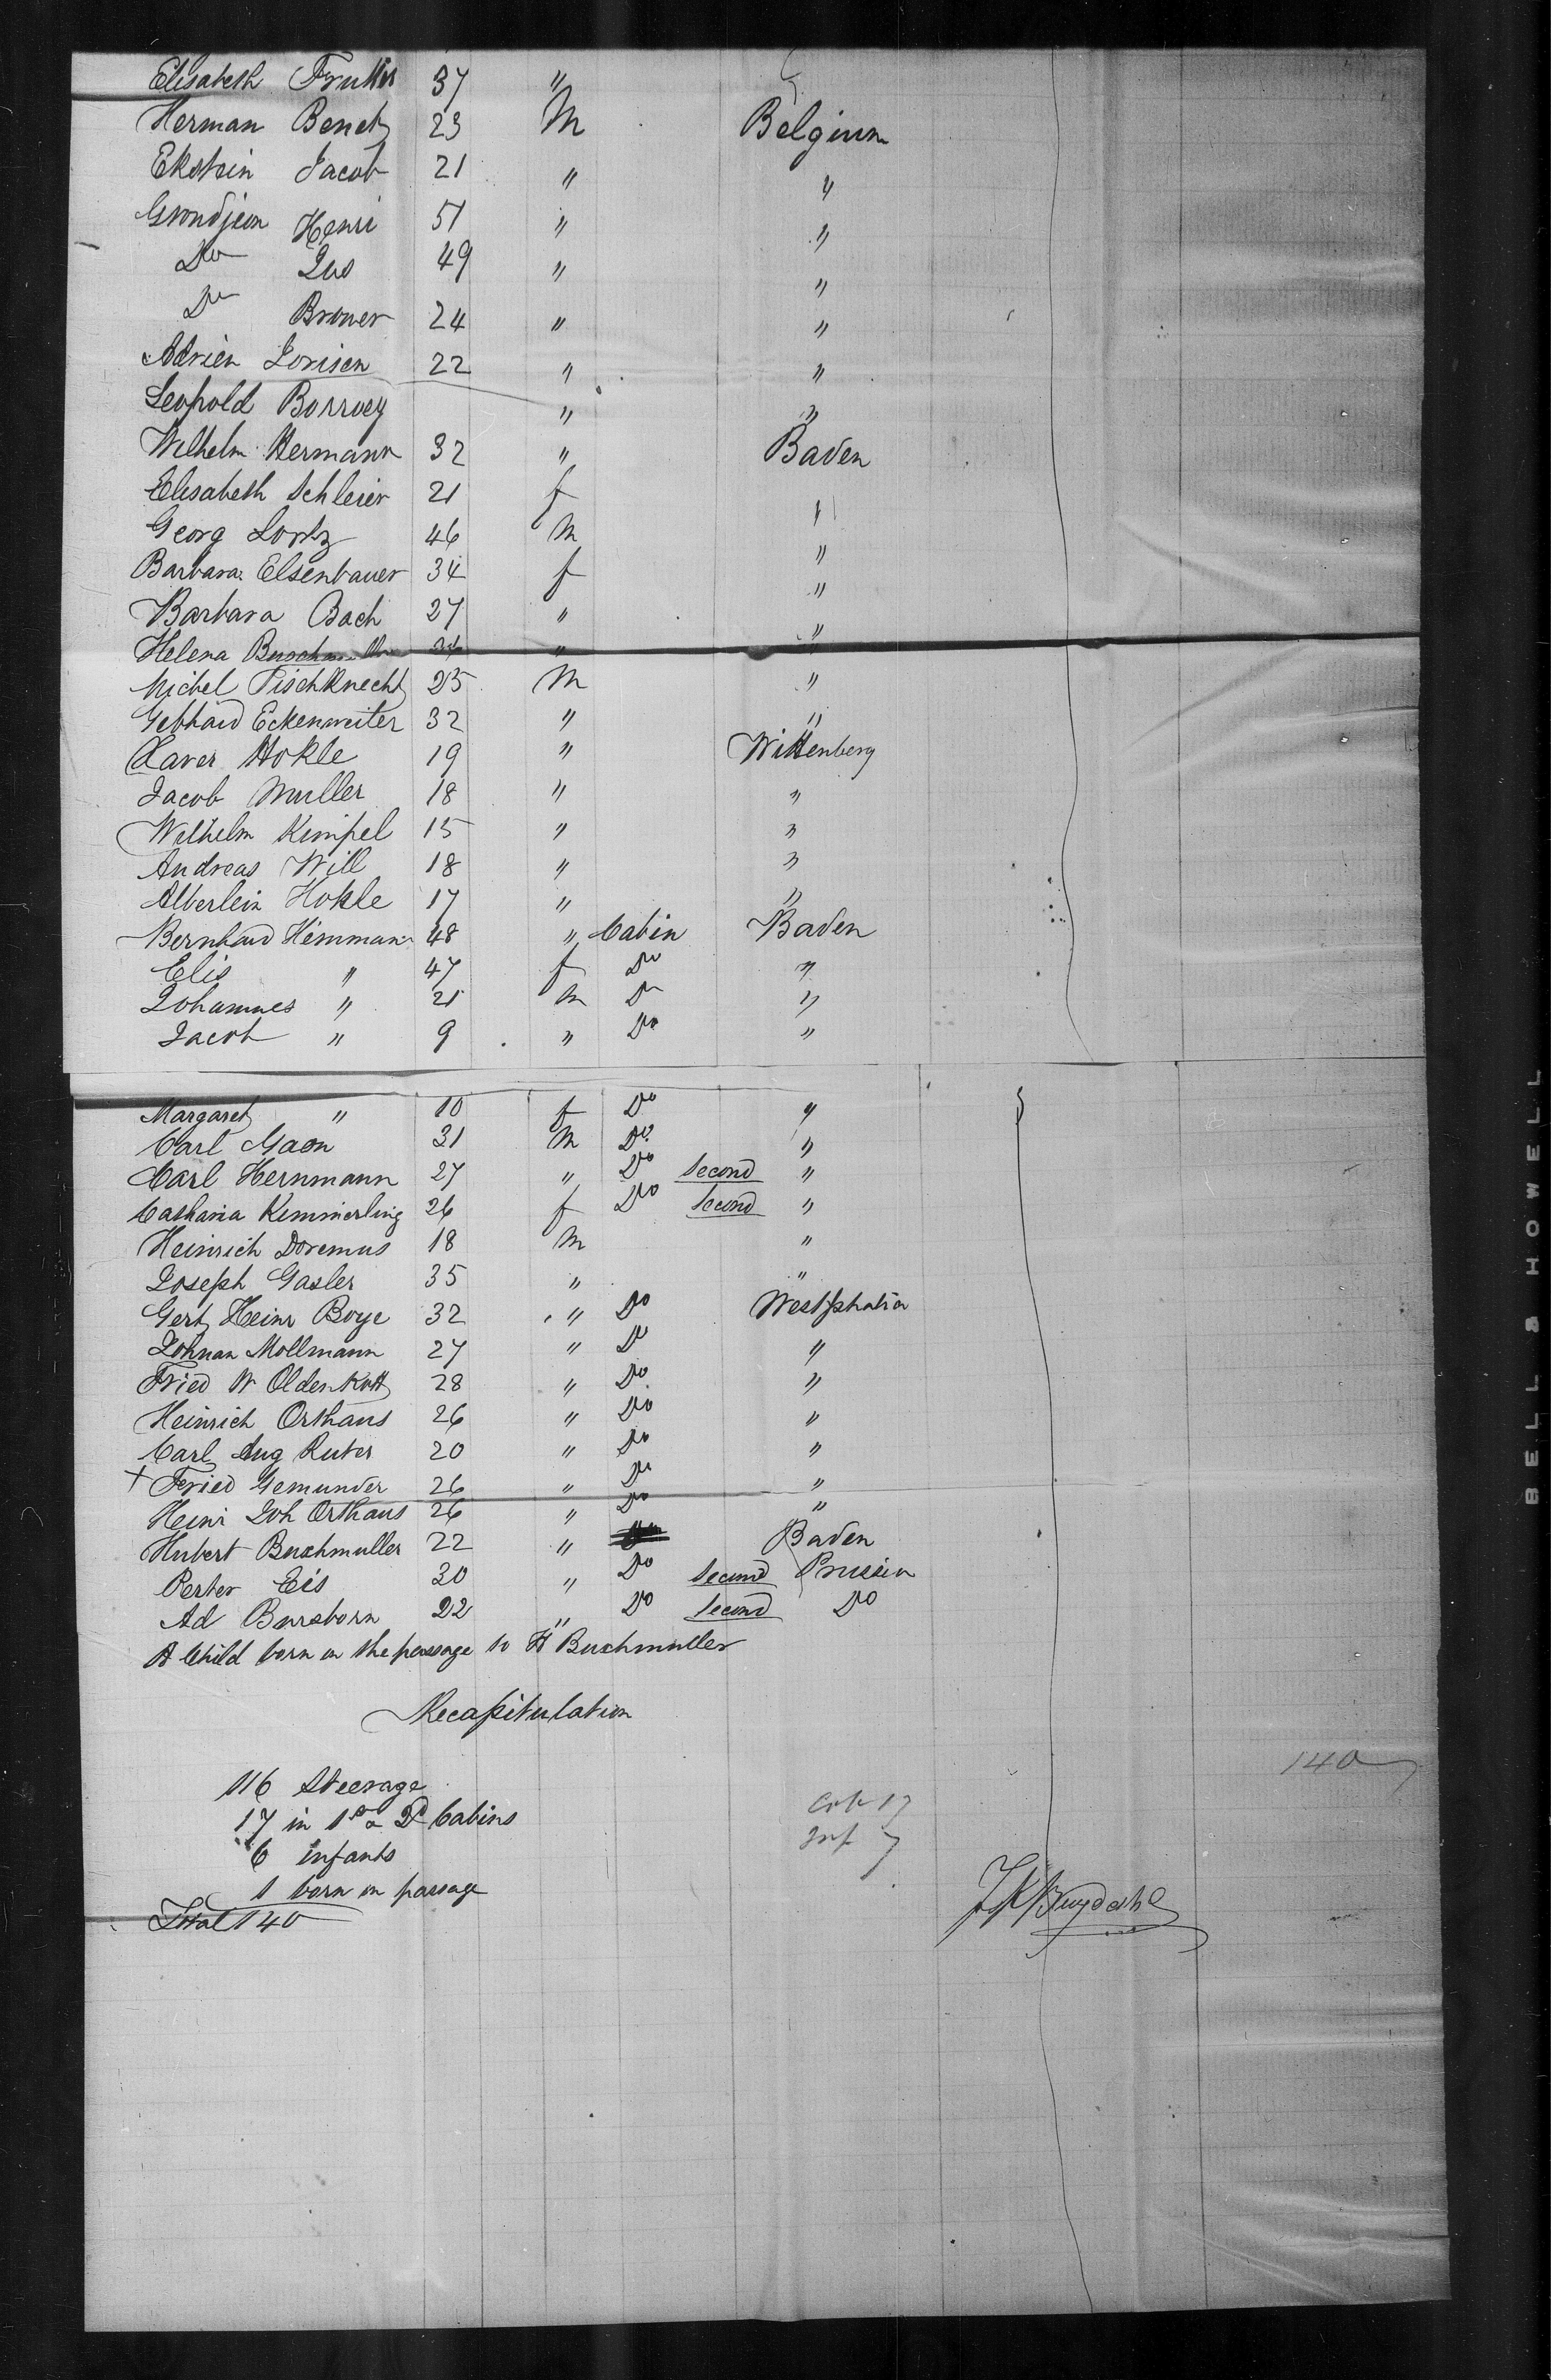 Elisabeth 37 "
Herman Benetz 23 M Belgium
Ekstein Jacob 21 " "
Grondjean Henri 51 " "
Do Jus 49 " "
Do Brower 24 " "
Adrien Lorisen 22 " "
Leopold Borroey " "
Wilhelm Hermann 32 " Baden
Elisabeth Schleier 21 f "
Georg Lortz 46 M "
Barbara Elsenbauer 34 f "
Barbara Bach 27 " "
Helena " "
Michel Tischknecht 25 M "
Gebhard Eckenweiter 32 " "
Xaver Hokle 19 " Wittenberg
Jacob Muller 18 " "
Wilhelm Kimpel 15 " "
Andreas Will 18 " "
Alberlein Hokle 17 " "
Bernhard Himman 48 " Cabin Baden
Elis " 47 f Do "
Johannes " 21 M Do "
Jacob " 9 " Do "
Margaret " 10 f Do "
Carl Gaon 31 M Do "
Carl Hernmann 27 " Do Second "
Catharia Kimmerling 26 f Do Second "
Heinrich Doremus 18 M "
Joseph Gasler 35 " "
Gert Heinr Boye 32 " Do Westphalia
Johnan Mollmann 27 " Do "
Fried W Oldenkott 28 " Do "
Heinrich Orthaus 26 " Do "
Carl Aug Ruter 20 " Do "
+ Fried Gemunder 26 " Do "
Heinr Joh Orthaus 26 " Do "
Hubert Buchmuller 22 " Baden
Perter Eis 30 " Do Second Prussia
Ad Bursborn 22 " Do Second Do
A Child born on the passage to H Buchmuller
Recapitulation
140
116 Steerage
17 in 1st & 2d Cabins
6 infants
1 born on passage
Total 140
Cab 17
Inf 7
BELL & HOWELL